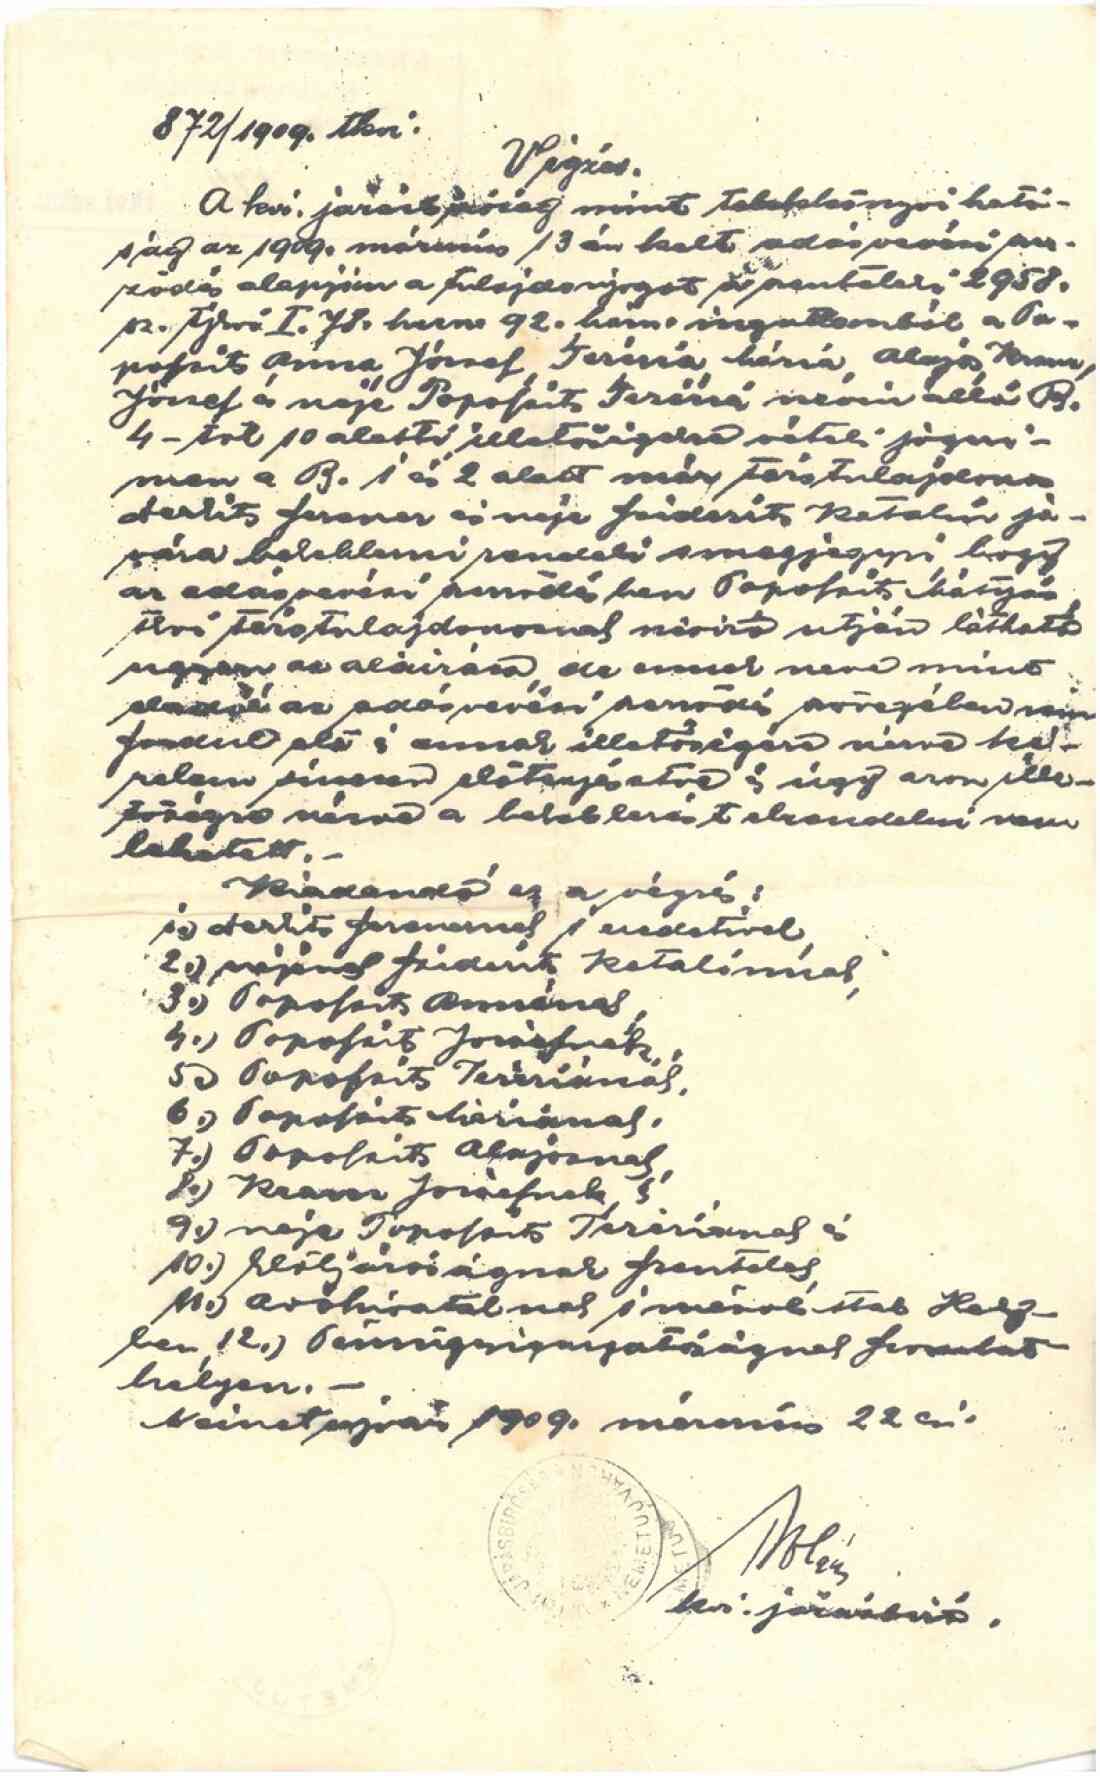 872/1909. tkvi.
Végzés.
A kir. járásbíróság mint telekkönyvi ható-
ság az 1909. március 13 án kelt adásvevési szer-
ződés alapján a tulajdonjogot a szenteleki 2958.
sz. tjkvi I. 78. hrsz. 92. ingatlanból a Po-
pofsits Anna József, Terézia, Mária, Alajos, Kram
József és neje Popofsits Terézia nevén álló B.
4 – től 10 alatti illetőségére vétel jogcí-
men a B. 1 és 2 alatt már társtulajdonos
Ferencz és neje Katalin ja-
vára bekeblezni rendeli s megjegyzi, hogy
az adásvevési szerződésben Popofsits Mátyás
tkvi társtulajdonosnak névíró utján látható
ugyan az aláirása, de ennek neve mint
eladóé az adásvevési szerződés szövegében nem
fordul elő s ennek illetőségére nézve ké-
relem sincsen előterjesztve s úgy azon ille-
tőségre nézve a bekeblezést elrendelni nem
lehetett. –
Kiadandó ez a végzés:
1.) Ferencznek s eredetivel,
2.) nejének Katalinnak,
3.) Popofsits Annának,
4.) Popofsits Józsefnek,
5.) Popofsits Teréziának,
6.) Popofsits Máriának.
7.) Popofsits Alajosnak,
8.) Kram Józsefnek, s
9.) neje Popofsits Teréziának és
10.) Elöljáróságnak Szentelek,
11.) Adóhivatalnak s Hely-
ben, 12.) Pénzügyigazgatóságnak Szombat-
helyen. –
Németujvár 1909. március 22 én.
kir. járásbíró.